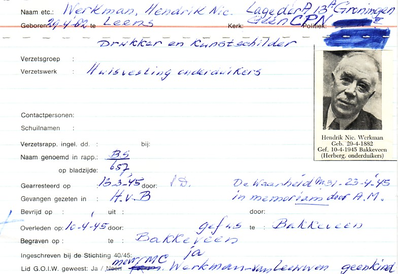 Naam etc.: Werkman, Hendrik Nic. Lage der A 13A Groningen
Geboren 29-4-'82 te Leens Kerk: CPN
Drukker en Kunstschilder
Verzetsgroep :
Verzetswerk : Huisvesting onderduikers
Contactpersonen:
Schuilnamen :
Verzetsrapp. ingel. dd. : bij:
Naam genoemd in rapp.: BS
op bladzijde: 657
Gearresteerd op : 13-3-45 door: De Waarheid 23-4-'45
Gevangen gezeten in : H.v.B in memoriam door A.M.
Bevrijd op : uit : door:
Overleden op : 10-4-45 door: gef.us te : Bakkeveen
Begraven op : te : Bakkeveen
Ingeschreven bij de Stichting 40/45: ja
Lid G.O.I.W. geweest: Ja / mevr. Werkman-van Leeuwen
Hendrik Nic. Werkman
Geb. 29-4-1882
Gef. 10-4-1945 Bakkeveen
(Herberg. onderduikers)